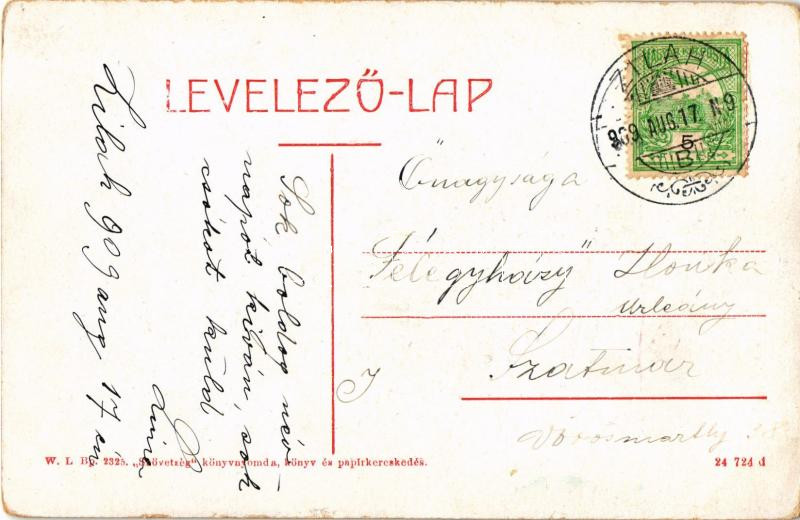 LEVELEZŐ-LAP
Zilah 909 aug 17 én
Sok boldog név-
napot kíván, sok
csókot küld
ZILAH
909 AUG 17
5
B
Őnagysága
Félegyházy Ilonka
urleány
Szatmár
Vörösmarthy
W. L. Bp. 2325. „Szövetség" könyvnyomda, könyv és papírkereskedés.
24 724 d